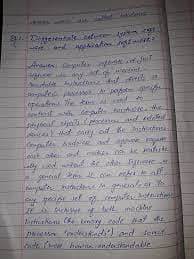 these words are called machine
Q:1. Differentiate between system soft
ware and application software?
Answer: Computer software or just
software is any set of machine
readable instructions that directs a
computer's processor to perform specific
operations. The term is used to
contrast with computer hardware, the
physical objects (processor and related
devices) that carry out the instructions.
Computer hardware and software require
each other and neither can be
used without the other. Software is
a general term. It can refer to all
computer instructions in general or to
any specific set of computer instructions.
It is inclusive of both machine
instructions (the binary code that the
processor "understands") and source
code (more human understandable